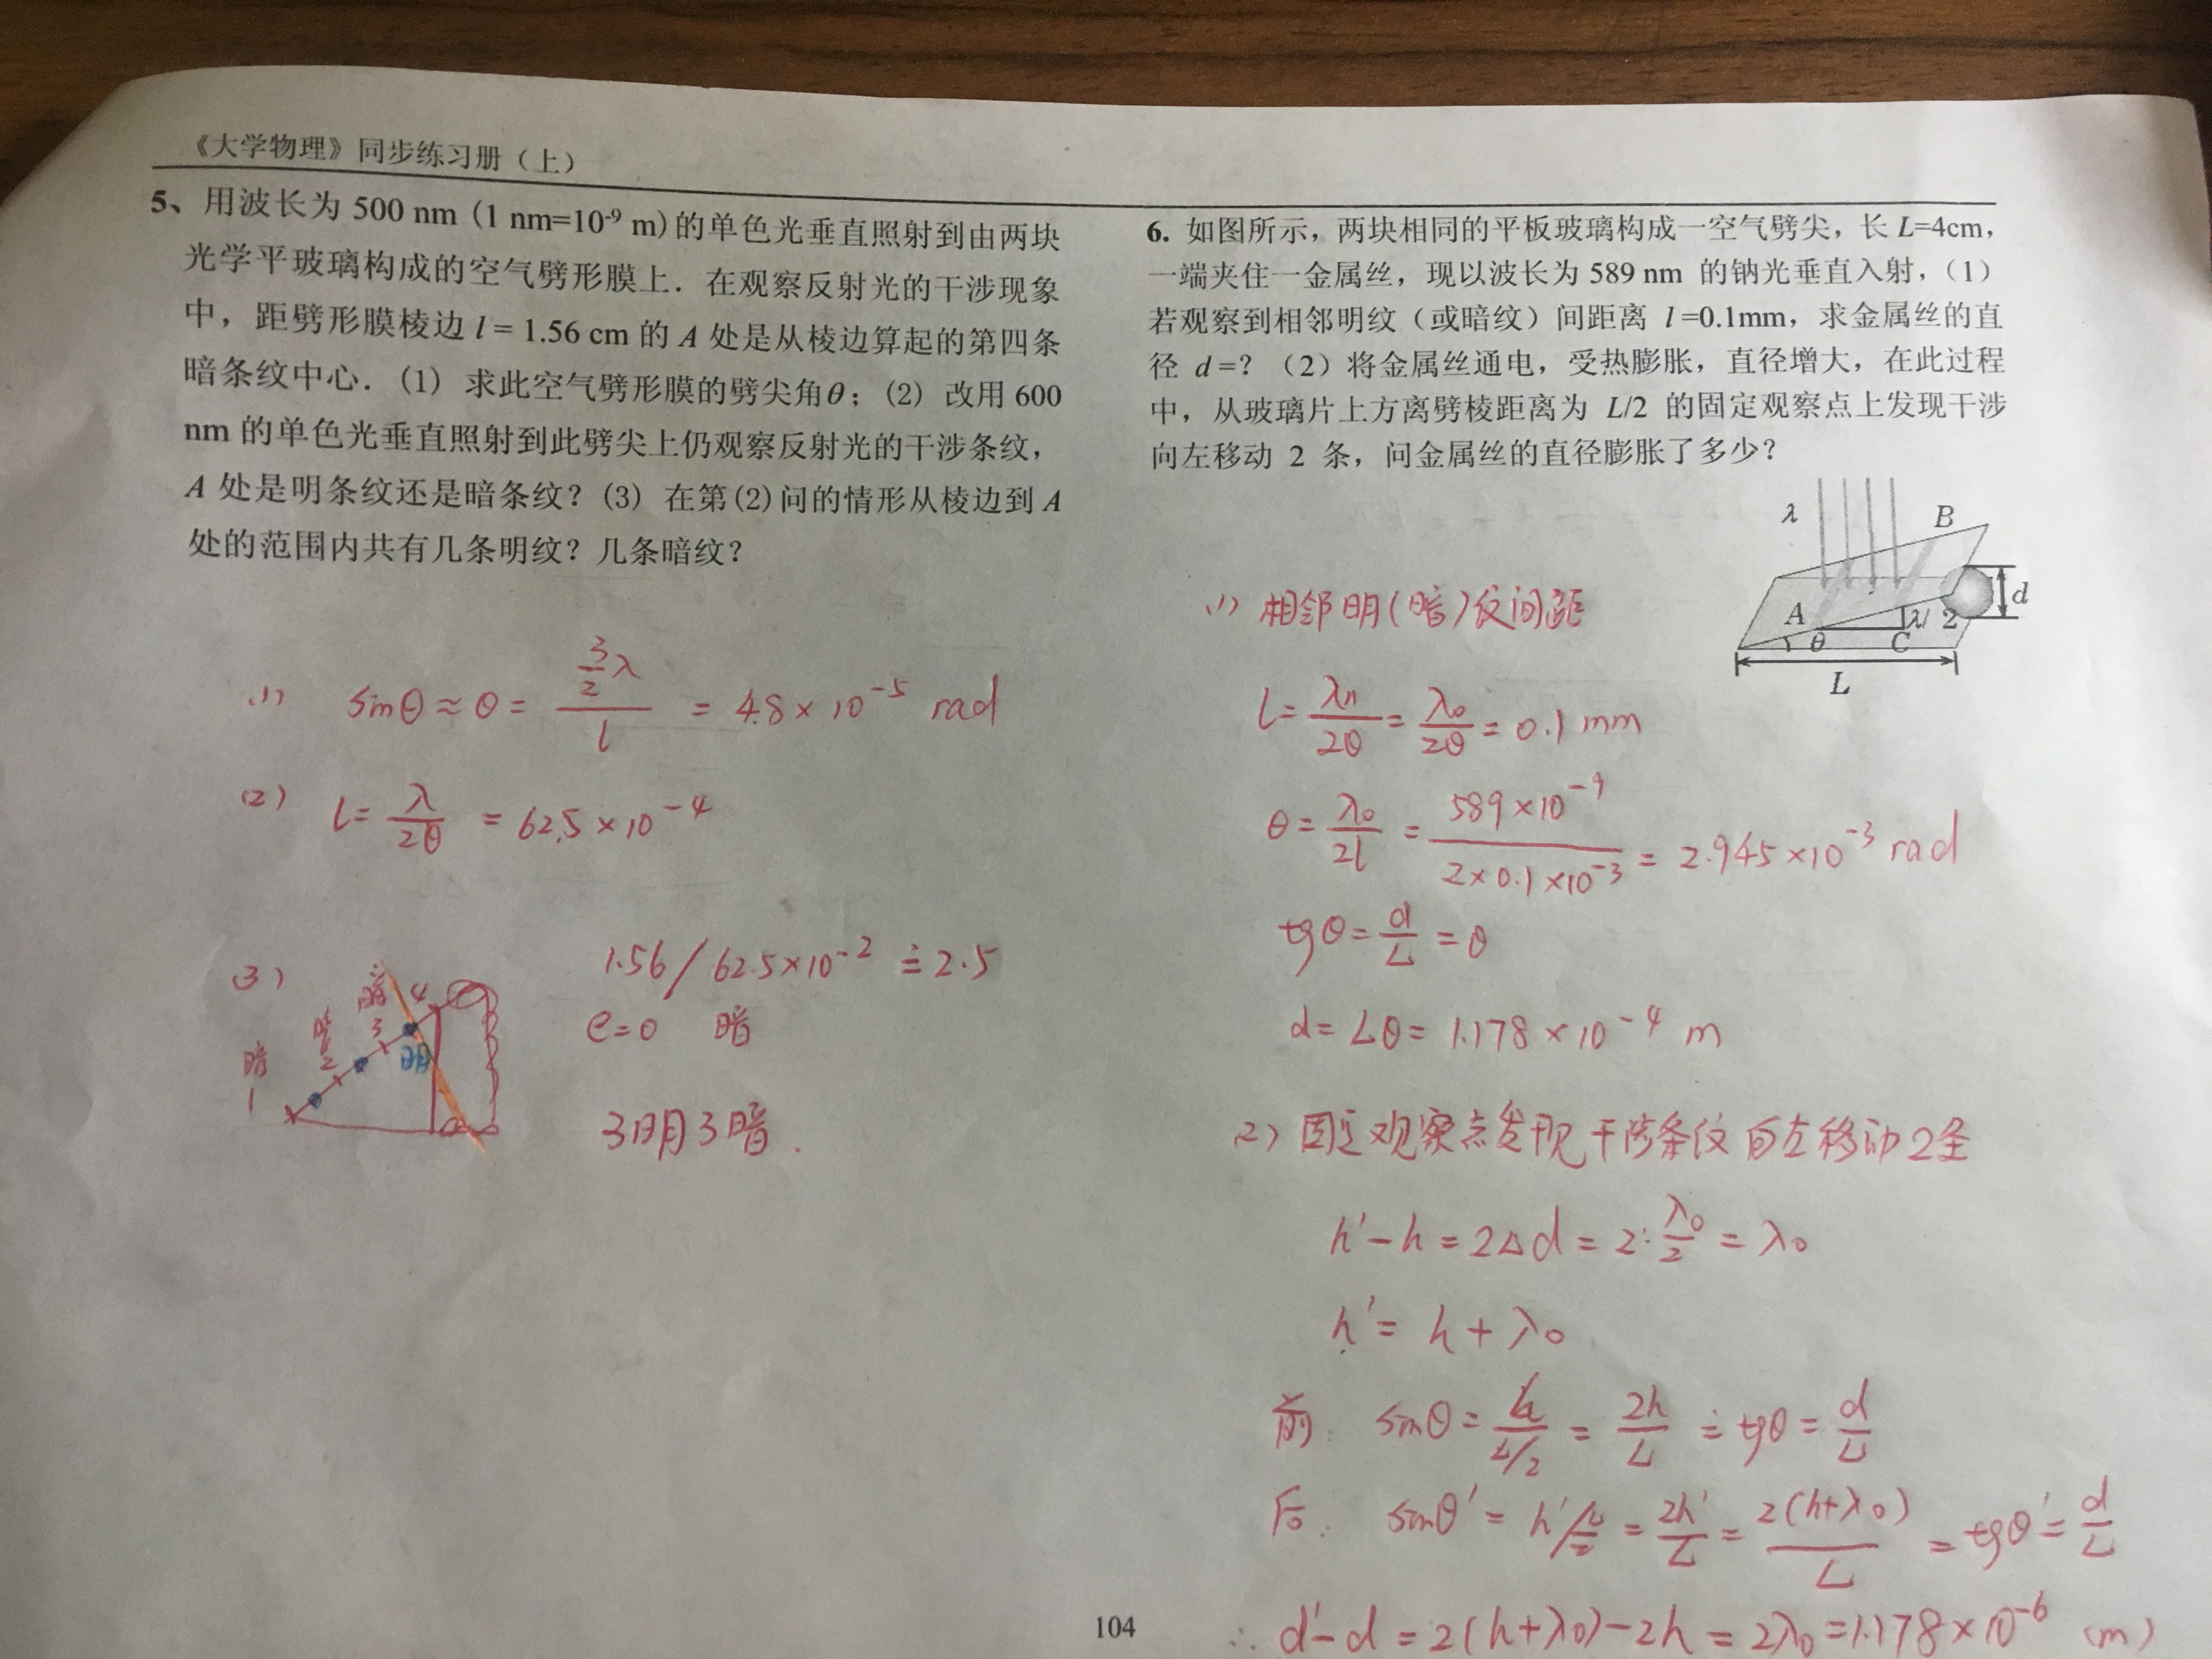 《大学物理》同步练习册（上）
5、用波长为 500 nm (1 nm=10⁻⁹ m)的单色光垂直照射到由两块
光学平玻璃构成的空气劈形膜上．在观察反射光的干涉现象
中，距劈形膜棱边 l = 1.56 cm 的 A 处是从棱边算起的第四条
暗条纹中心．(1) 求此空气劈形膜的劈尖角θ；(2) 改用 600
nm 的单色光垂直照射到此劈尖上仍观察反射光的干涉条纹，
A 处是明条纹还是暗条纹？(3) 在第(2)问的情形从棱边到 A
处的范围内共有几条明纹？几条暗纹？
(1) sinθ≈θ= (3/2 λ)/l = 4.8×10⁻⁵ rad
(2) l= λ/2θ = 62.5×10⁻⁴
(3)
暗 4
暗 3
2
明
暗
1
1.56/62.5×10⁻² ≐ 2.5
e=0 暗
3明3暗.
6. 如图所示，两块相同的平板玻璃构成一空气劈尖，长 L=4cm，
一端夹住一金属丝，现以波长为 589 nm 的钠光垂直入射，（1）
若观察到相邻明纹（或暗纹）间距离 l =0.1mm，求金属丝的直
径 d =？（2）将金属丝通电，受热膨胀，直径增大，在此过程
中，从玻璃片上方离劈棱距离为 L/2 的固定观察点上发现干涉
向左移动 2 条，问金属丝的直径膨胀了多少？
λ
B
d
A
λ/ 2
θ
C
L
(1) 相邻明(暗)纹间距
l= λn/2θ = λ₀/2θ = 0.1 mm
θ= λ₀/2l = 589×10⁻⁹/2×0.1×10⁻³ = 2.945×10⁻³ rad
tgθ= d/L =θ
d= Lθ= 1.178×10⁻⁴ m
(2) 固定观察点发现干涉条纹向左移动2条
h'-h=2Δd=2·λ₀/2=λ₀
h'= h+λ₀
前: sinθ= h/(L/2) = 2h/L ≐ tgθ= d/L
后: sinθ'= h'/(L/2) = 2h'/L = 2(h+λ₀)/L = tgθ'= d'/L
∴ d'-d = 2(h+λ₀)-2h = 2λ₀=1.178×10⁻⁶ (m)
104